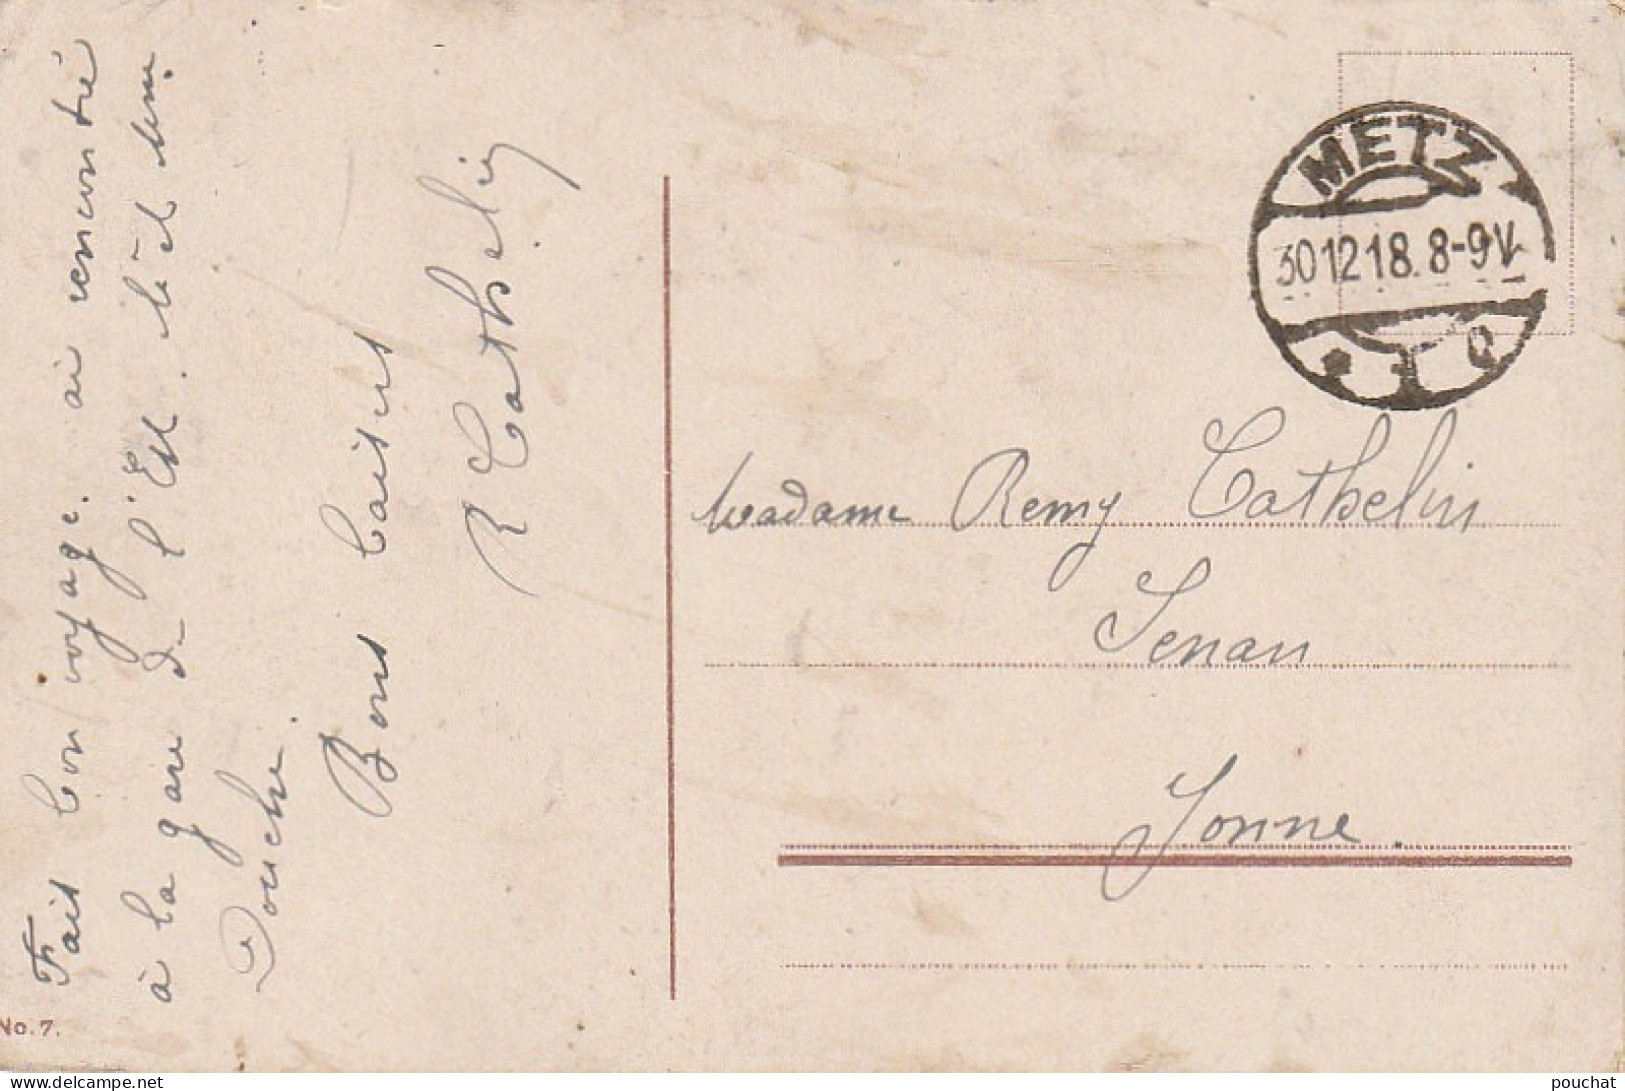 Fait bon voyage. ai rencontré
à la gare de l'Est
Douche.
Bons baisers
R Cathelin
No. 7.
METZ
30 12 18. 8-9 V.
Madame Remy Cathelin
Senan
Yonne.
delcampe.net
pouchat